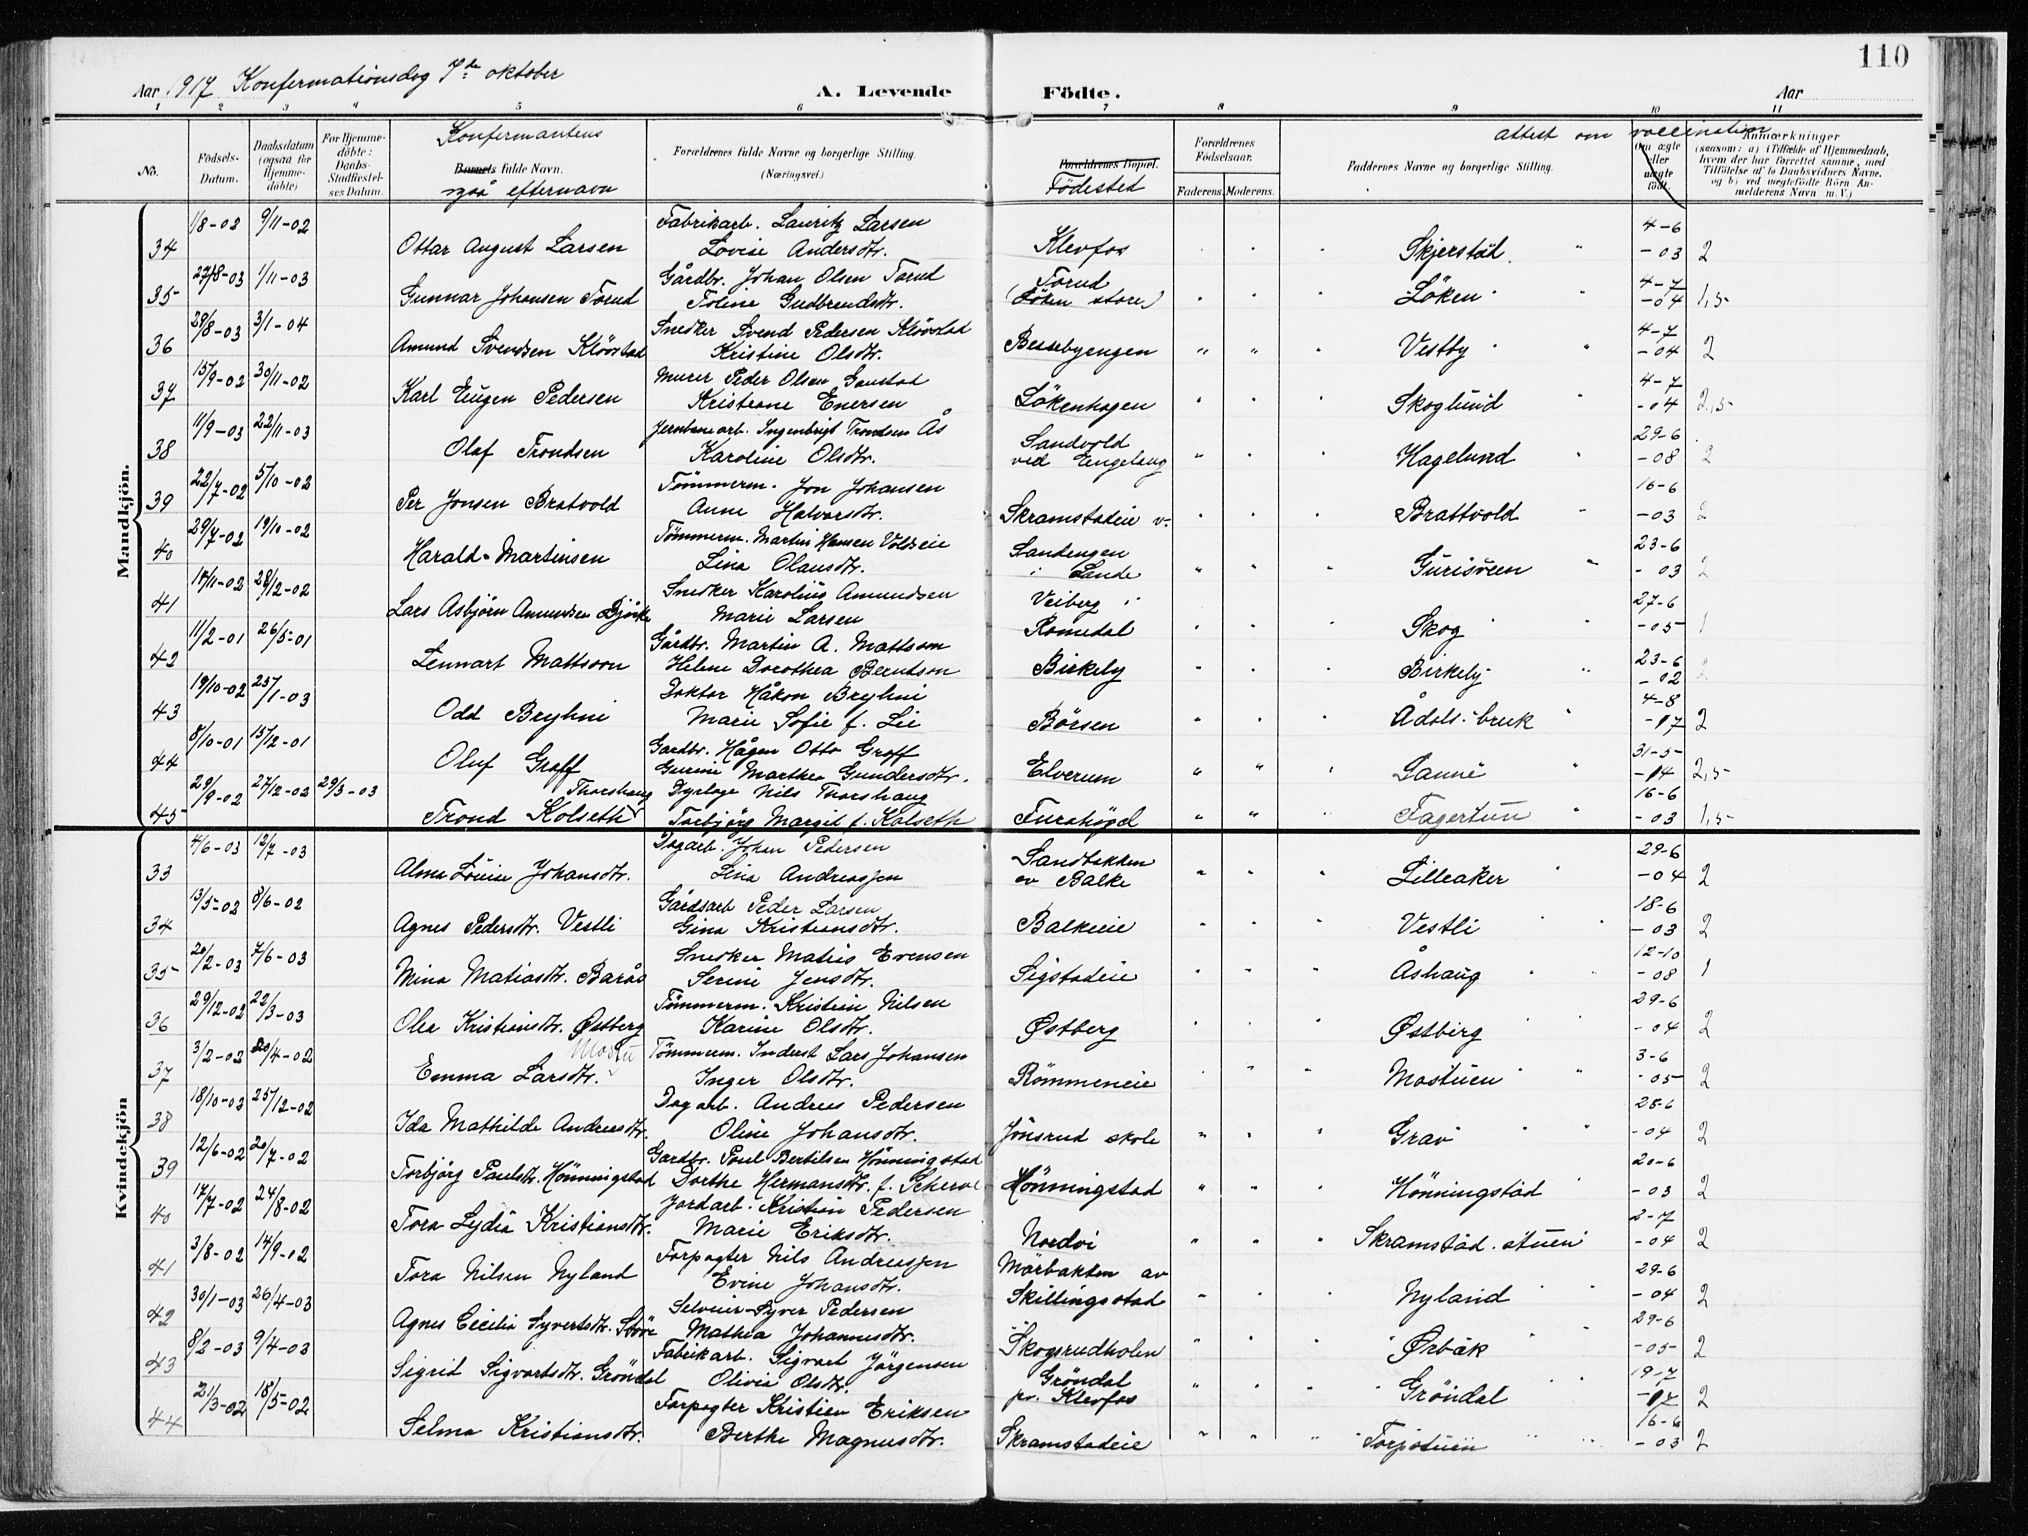 110
Aar 1917 Konfermationsdag 7de oktober A. Levende Födte. Aar
1 2 3 4 5 6 7 8 9 10 11
No. Födsels-Datum. Daabsdatum (ogsaa för Hjemme-döbte) For Hjemme-döbte: Daabs-Stadfæstel-ses Datum. Konfermantens Barnets fulde Navn. også efternavn Forældrenes fulde Navne og borgerlige Stilling. (Næringsvei.) Forældrenes Bopæl. Födested Forældrenes Födselsaar. Faderens. Moderens. Faddernes Navne og borgerlige Stilling. attest om vaccination Om ægte eller uægte födt. Anmærkninger (saasom: a) i Tilfælde af Hjemmedaab, hvem der har forrettet samme, med Tilföielse af to Daabsvidners Navne, og b) ved uegtefödte Börn An-melderens Navn m. V.)
Mandkjön.
34 1/8-02 9/11-02 Ottar August Larsen Fabrikarb. Lauritz Larsen Lovise Andersdtr. Klevfos Skjerstad 4-6 -03 2
35 27/8-03 1/11-03 Gunnar Johansen Torud Gårdbr. Johan Olsen Torud Toline Gudbrandsdtr. Torud (Löken store) Löken 4-7 -04 1,5
36 28/8-03 3/1-04 Amund Svendsen Klövstad Snedker Svend Pedersen Klövstad Kristine Olsdtr. Bessebyengen Vestby 4-7 -04 2
37 15/9-02 30/11-02 Karl Eugen Pedersen Murer Peder Olsen Gaustad Kristiane Enersen Lökenhagen Skoglund 4-7 -04 2,5
38 11/9-03 22/11-03 Olaf Trondsen Jernbanearb. Ingenbrigt Trondsen Ås Karoline Olsdtr. Sandvold ved Engelaug Hagelund 29-6 -08 2
39 22/7-02 5/10-02 Per Jonsen Bratvold Tømmerm. Jon Johansen Anne Halvorsdtr. Skramstadeie v- Brattvold 16-6 -03 2
40 29/7-02 19/10-02 Harald Martinsen Tømmerm. Martin Hansen Voldseie Lina Olausdtr. Sandengen i Sande Gurisveen 23-6 -03 2
41 14/11-02 28/12-02 Lars Asbjörn Amundsen Björke Snedker Karolius Amundsen Marie Larsen Veiberg i Romedal Skog 27-6 -05 1
42 11/2-01 26/5-01 Lennart Mattsson Gårdbr. Martin A. Mattsson Helene Dorothea Berntson Birkely Birkely 23-6 -02 2
43 19/10-02 25/1-03 Odd Bryhni Doktor Håkon Bryhni Marie Sofie f. Lie Börsen Ådals-bruk 4-8 -17 2
44 8/10-01 15/12-01 Oluf Groff Gardbr. Hågen Otto Groff Gurine Marthea Gundersdtr. Elverum Sanne 31-5 -14 2,5
45 29/9-02 27/12-02 29/3-03 Trond Kolseth Thorshaug Dyrlæge Nils Thorshaug Torbjörg Margit f. Kolseth Furuhögd Fagertun 16-6 -03 1,5
Kvindekjön
33 4/6-03 12/7-03 Alma Lovise Johansdtr. Dagarb. Johan Pedersen Lina Andreassen Sandbakken av Balke Lilleaker 29-6 -04 2
34 13/5-02 8/6-02 Agnes Pedersdtr. Vestli Gårdsarb Peder Larsen Gina Kristiansdtr. Balkeeie Vestli 18-6 -03 2
35 20/2-03 7/6-03 Mina Matiasdtr. Barås Snedker Matias Evensen Serine Jensdtr. Sigstadeie Åshaug 12-10 -08 1
36 29/12-02 22/3-03 Olea Kristiansdtr. Østberg Tömmerm. Kristian Nilsen Karine Olsdtr. Østberg Østberg 29-6 -04 2
37 3/2-02 20/4-02 Emma Larsdtr. Mostu Tömmerm. Inderst Lars Johansen Inger Olsdtr. Römmeneie Mostuen 3-6 -05 2
38 18/10-03 25/12-02 Ida Mathilde Andreasdtr. Dagarb. Andreas Pedersen Oline Johansdtr. Jönsrud skole Grav 28-6 -04 2
39 12/6-02 20/7-02 Torbjörg Paulsdtr. Hönningstad Gardbr. Paul Bertilsen Hönningstad Dorthe Hermansdtr. f. Scherve Hönningstad Hönningstad 20-6 -03 2
40 17/7-02 24/8-02 Tora Lydia Kristiansdtr. Jordarb. Kristian Pedersen Marie Eriksdtr. Nordvi Skramstad-stuen 2-7 -04 2
41 3/8-02 14/9-02 Tora Nilsen Nyland Forpagter Nils Andreassen Evine Johansdtr. Mörbakken av Skillingsstad Nyland 29-6 -04 2
42 30/1-03 26/4-03 Agnes Cecilia Syvertsdtr. Selveier Syver Pedersen Mathea Johannesdtr. Skogsrudholen Ørbäk 29-6 -05 2
43 8/2-03 9/4-03 Sigrid Sigvartsdtr. Gröndal Fabrikarb. Sigvart Jörgensen Olivia Olsdtr. Gröndal pr. Klevfos Gröndal 19-7 -17 2
44 21/3-02 18/5-02 Selma Kristiansdtr. Forpagter Kristian Eriksen Berthe Magnusdtr. Skramstadeie Torpstuen 16-6 -03 2